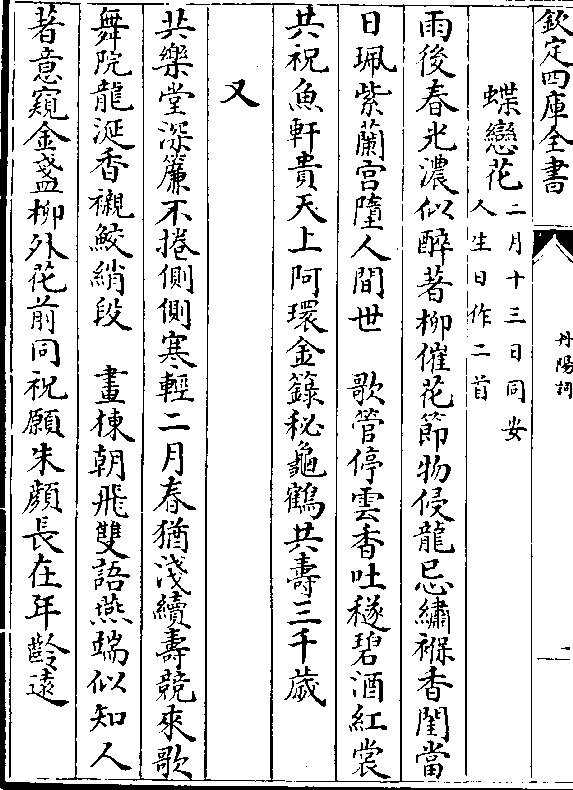 欽定四庫全書
丹陽詞
二
蝶戀花 二月十三日同安
人生日作二首
雨後春光濃似醉著柳催花節物侵龍忌繡褓香閨當
日珮紫蘭宫墮人間世 歌管停雲香吐穟碧酒紅裳
共祝魚軒貴天上阿環金籙秘龜鶴共壽三千歲
又
共樂堂深簾不捲側側寒輕二月春猶淺續壽競來歌
舞院龍涎香襯鮫綃段 畫棟朝飛雙語燕端似知人
著意窺金盞柳外花前同祝願朱顔長在年齡遠